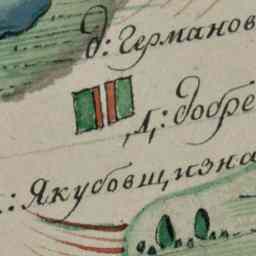 д: Германов
д: добре
: Якубовщизна